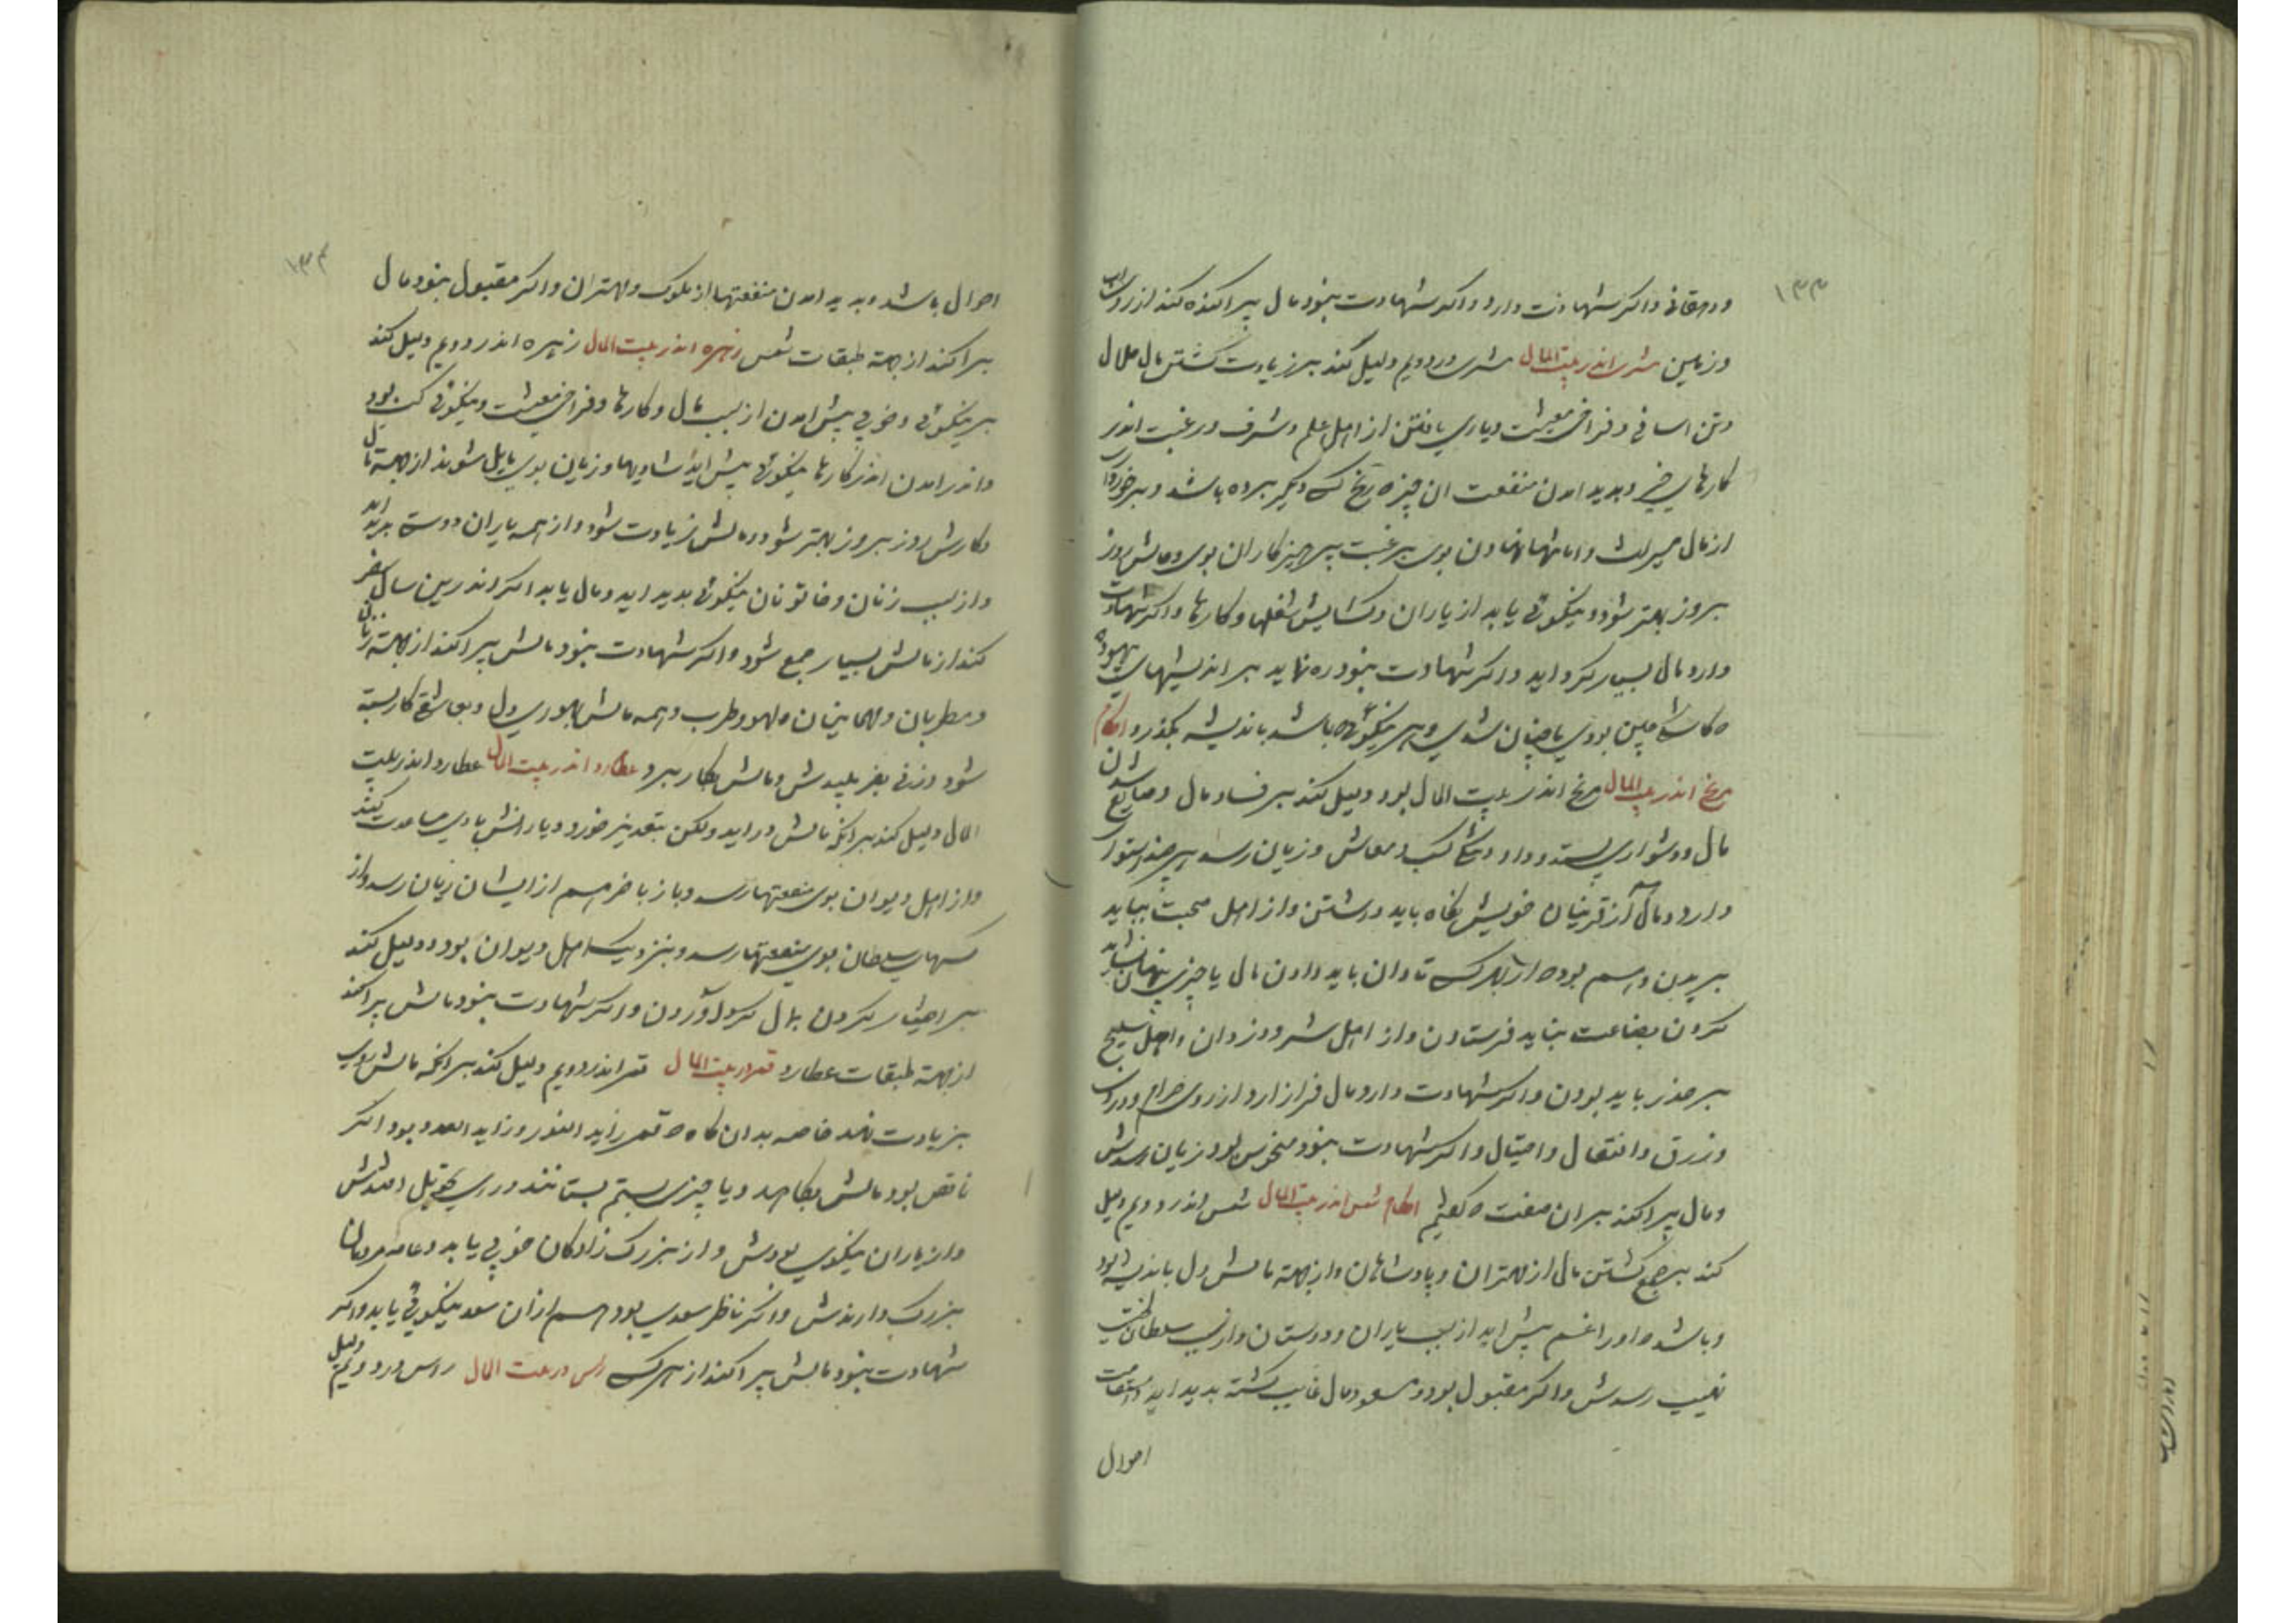 ۱۳۳
ودهقانی واکر شهادت دارد واکر شهادت نبود مال پراکنده کند از روی
وزمین مشتری اندر بیت المال مشتری در دویم دلیل کند بر زیادت کشتن مال حلال
وتن اسانی وفراخی معیشت ویاری یافتن از اهل علم وشرف ورغبت اندر
کارهای خیر وپدید امدن منفعت ان چیز که رنج کسی دیکر برده باشد وبرخورداری
از مال میراث وامانتها نهادن بوی برغبت پرهیزکاران بوی وحالش روز
بروز بهتر شود ونیکوئی یابد از یاران وکشایش شغلها وکارها واکر شهادت
دارد مال بسیار کرد اید واکر شهادت نبود ره نماید بر اندیشهای بیهوده
که کاشکی چنین بودی یا چنان شدی وهر نیکوئی که باشد باندیشه بکذرد احکام
مریخ اندر بیت المال مریخ اندر بیت المال بود دلیل کند بر فساد مال وضایع شدن
مال ودشواری ستد وداد کسب ومعاش وزیان رسد هرچند استوار
دارد ومال از قرینان خویش نکاه باید داشتن واز اهل صحبت بباید
بریدن وبیم بود که از بهر کسی تاوان باید دادن مال یا چیزی پنهان نشاید
کردن بضاعت نباید فرستادن واز اهل شر ودزدان واهل سلیح
بر حذر باید بودن واکر شهادت دارد مال فراز ارد از روی حرام ودزدی
وزرق وانتقال واحتیال واکر شهادت نبود منحوس بود زیان رسدش
ومال پراکند بران صفت که کفتیم احکام شمس اندر بیت المال شمس اندر دویم دلیل
کند بر جمع کشتن مال از مهتران وپادشاهان واز جهة مالش دل باندیشه بود
وباشد که اورا غم پیش اید از سبب یاران ودوستان واز سلطان
نصیب رسدش واکر مقبول بود ومسعود مال غایب کشته پدید اید واستقامت
احوال
۱۳۴
احوال باشد وپدید امدن منفعتها از ملوک ومهتران واکر مقبول نبود مال
پراکند از جهة طبقات شمس زهره اندر بیت المال زهره اندر دویم دلیل کند
بر نیکوئی وخوبی پیش امدن از سبب مال وکارها وفراخی معیشت ونیکوئی کسب بود
واندر امدن اندر کارها نیکوئی پیش اید شادیها وزنان بوی مایل شوند از جهة مال
وکارش روز بروز بهتر شود ومالش زیادت شود واز همه یاران دوست پدید اید
واز سبب زنان وخاتونان نیکوئی پدید اید ومال یابد اکر اندرین سال سفر
کند از مالش بسیار جمع شود واکر شهادت نبود مالش پراکند از جهة زنان
ومطربان ومهمانیان ولهو وطرب وهمه مالش بهوری دل وبعاشقی کار بسته
شود وزنی بفریبدش ومالش بکار برد عطارد اندر بیت المال عطارد اندر بیت
المال دلیل کند بر انکه مالش دراید ولکن بتقدیر خورد ویارانش با وی مساعدت کنند
واز اهل دیوان بوی منفعتها رسد وباز باخر هم از ایشان زیان رسد واز
کسهای سلطان بوی منفعتها رسد وبنزدیک اهل دیوان بود ودلیل کند
بر احتیال کردن بمال کرد آوردن واکر شهادت نبود مالش پراکند
از جهة طبقات عطارد قمر در بیت المال قمر اندر دویم دلیل کند بر انکه مالش روی
بزیادت نهد خاصه بدان کاه که قمر زاید النور وزاید العدد بود اکر
ناقص بود مالش بکاهد ویا چیزی بستم بستانند
واز یاران نیکوی بودش واز بزرک زادکان خوبی یابد وعامه مردمان
بزرک دارندش واکر ناظر سعدی بود هم ازان سعد نیکوئی یابد واکر
شهادت نبود مالش پراکند از هر کسی راس در بیت المال راس در دویم دلیل